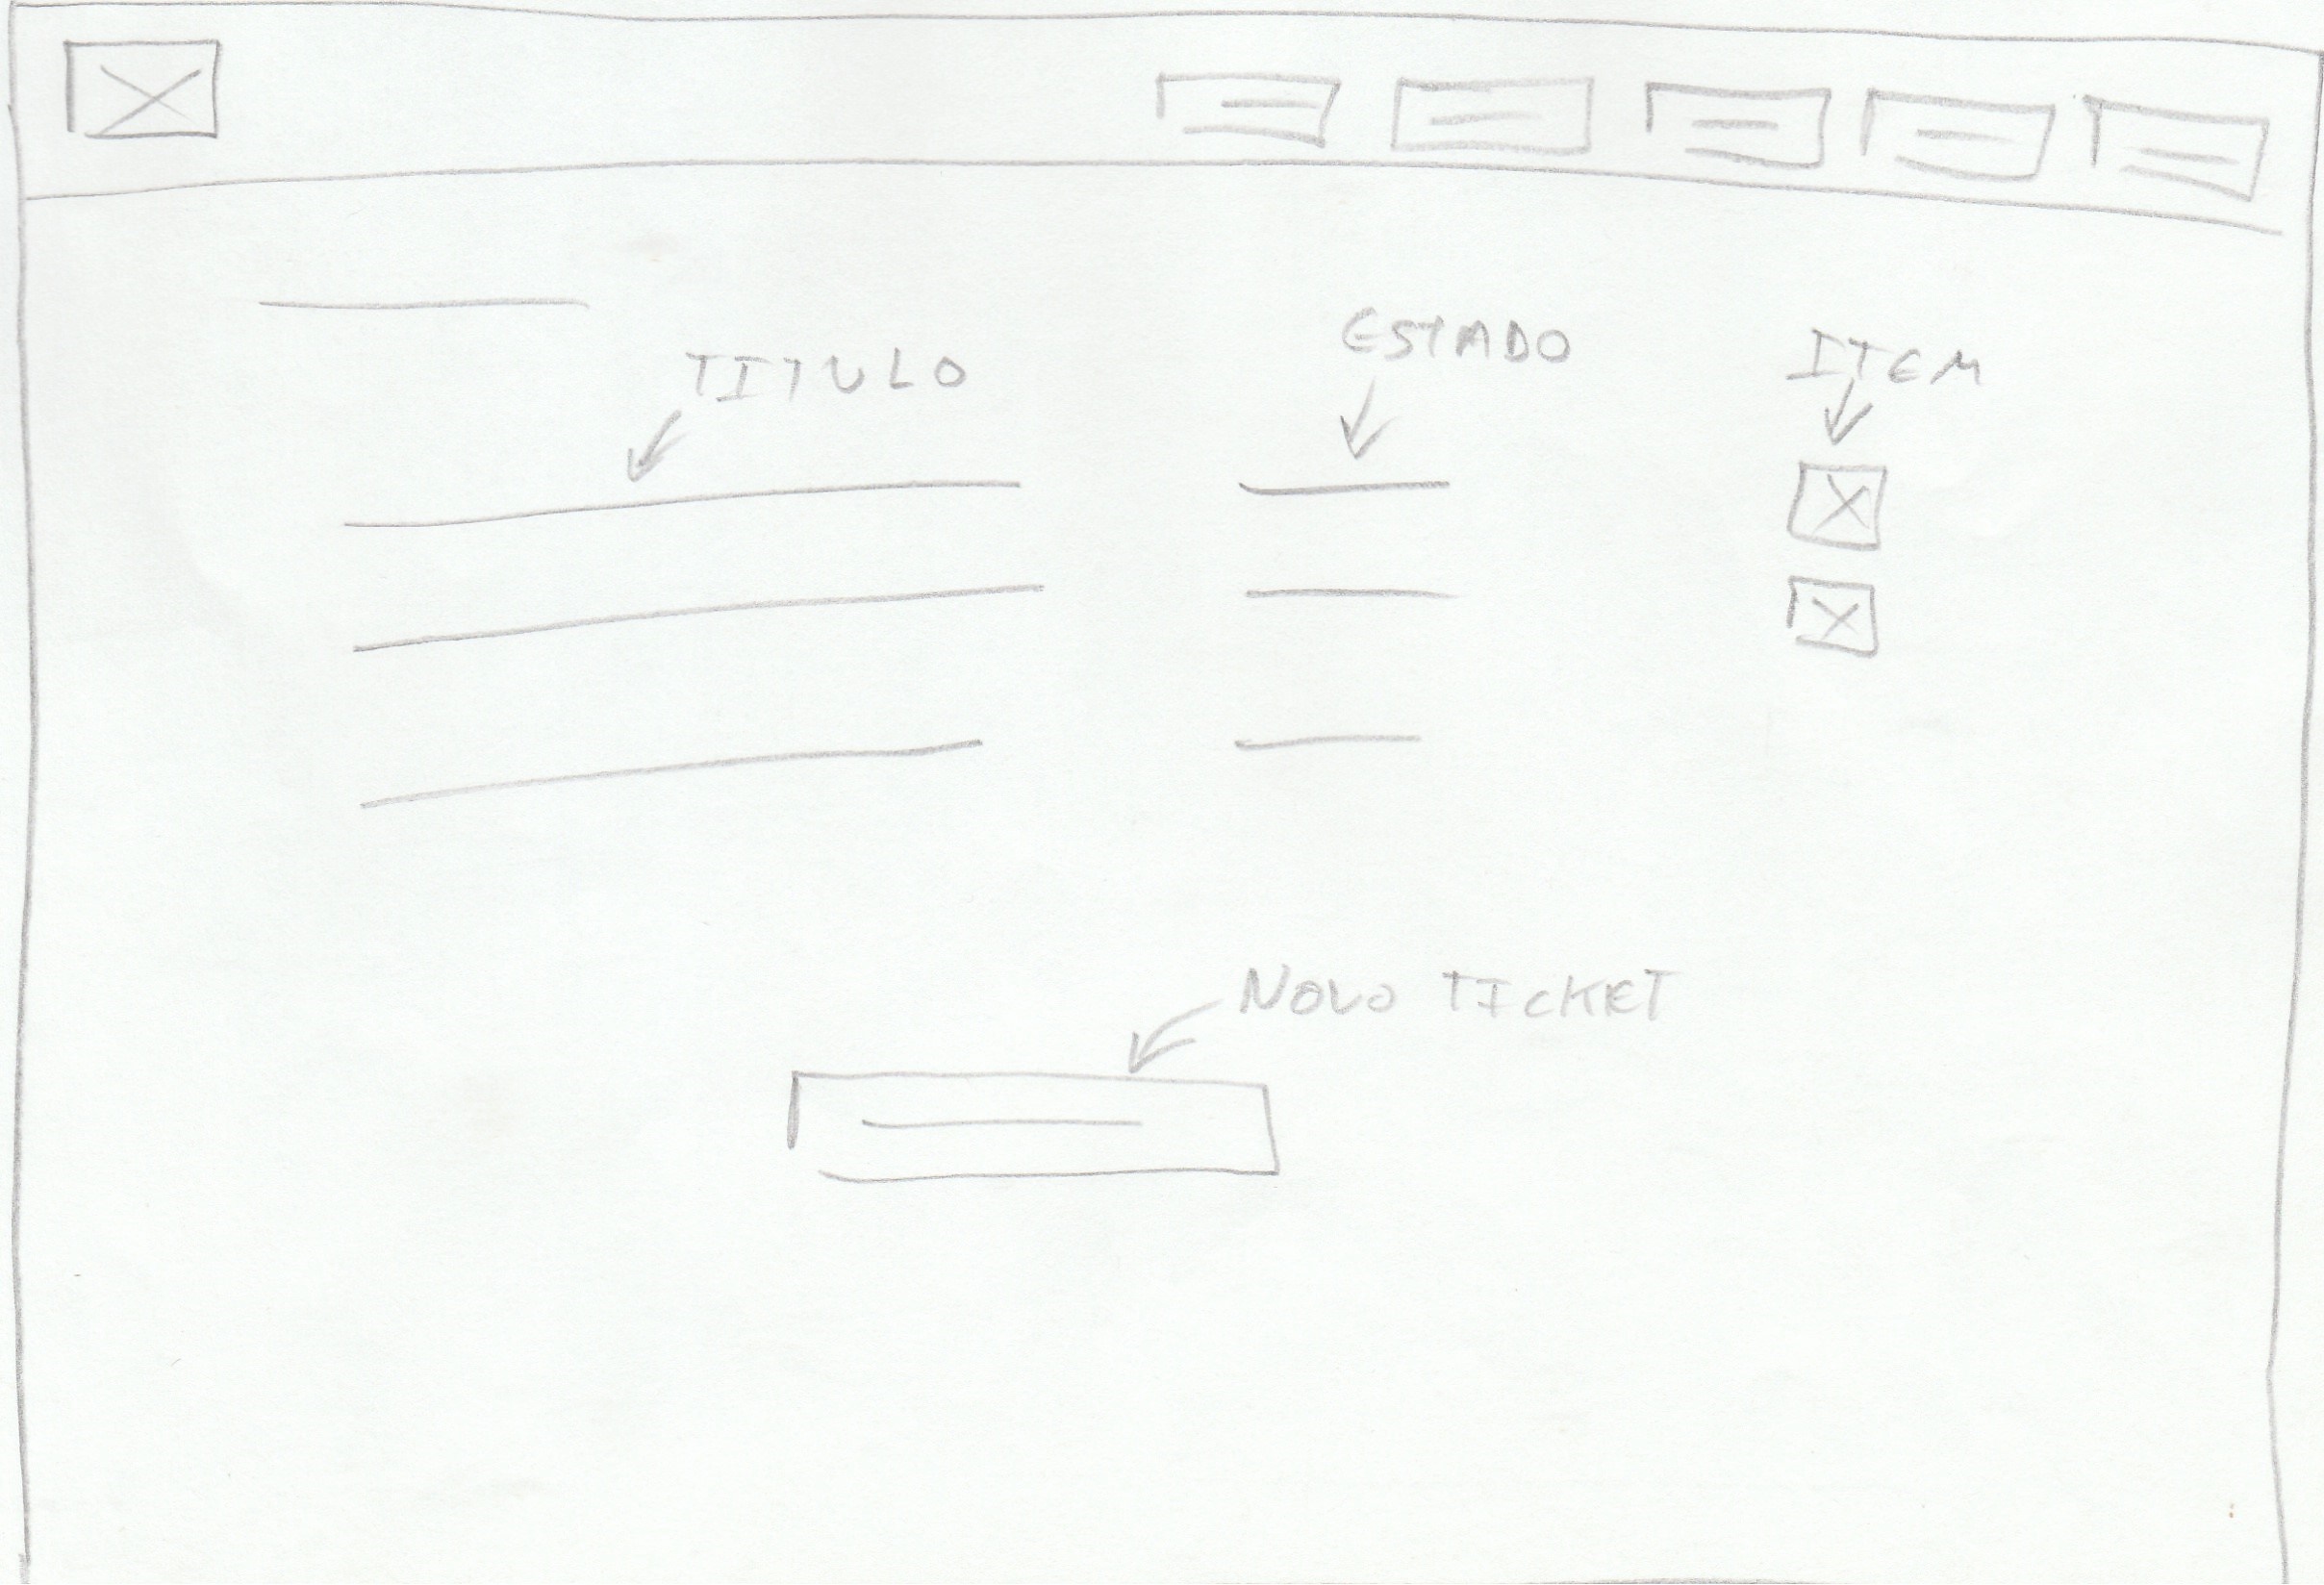 TITULO
ESTADO
ITEM
NOVO TICKET